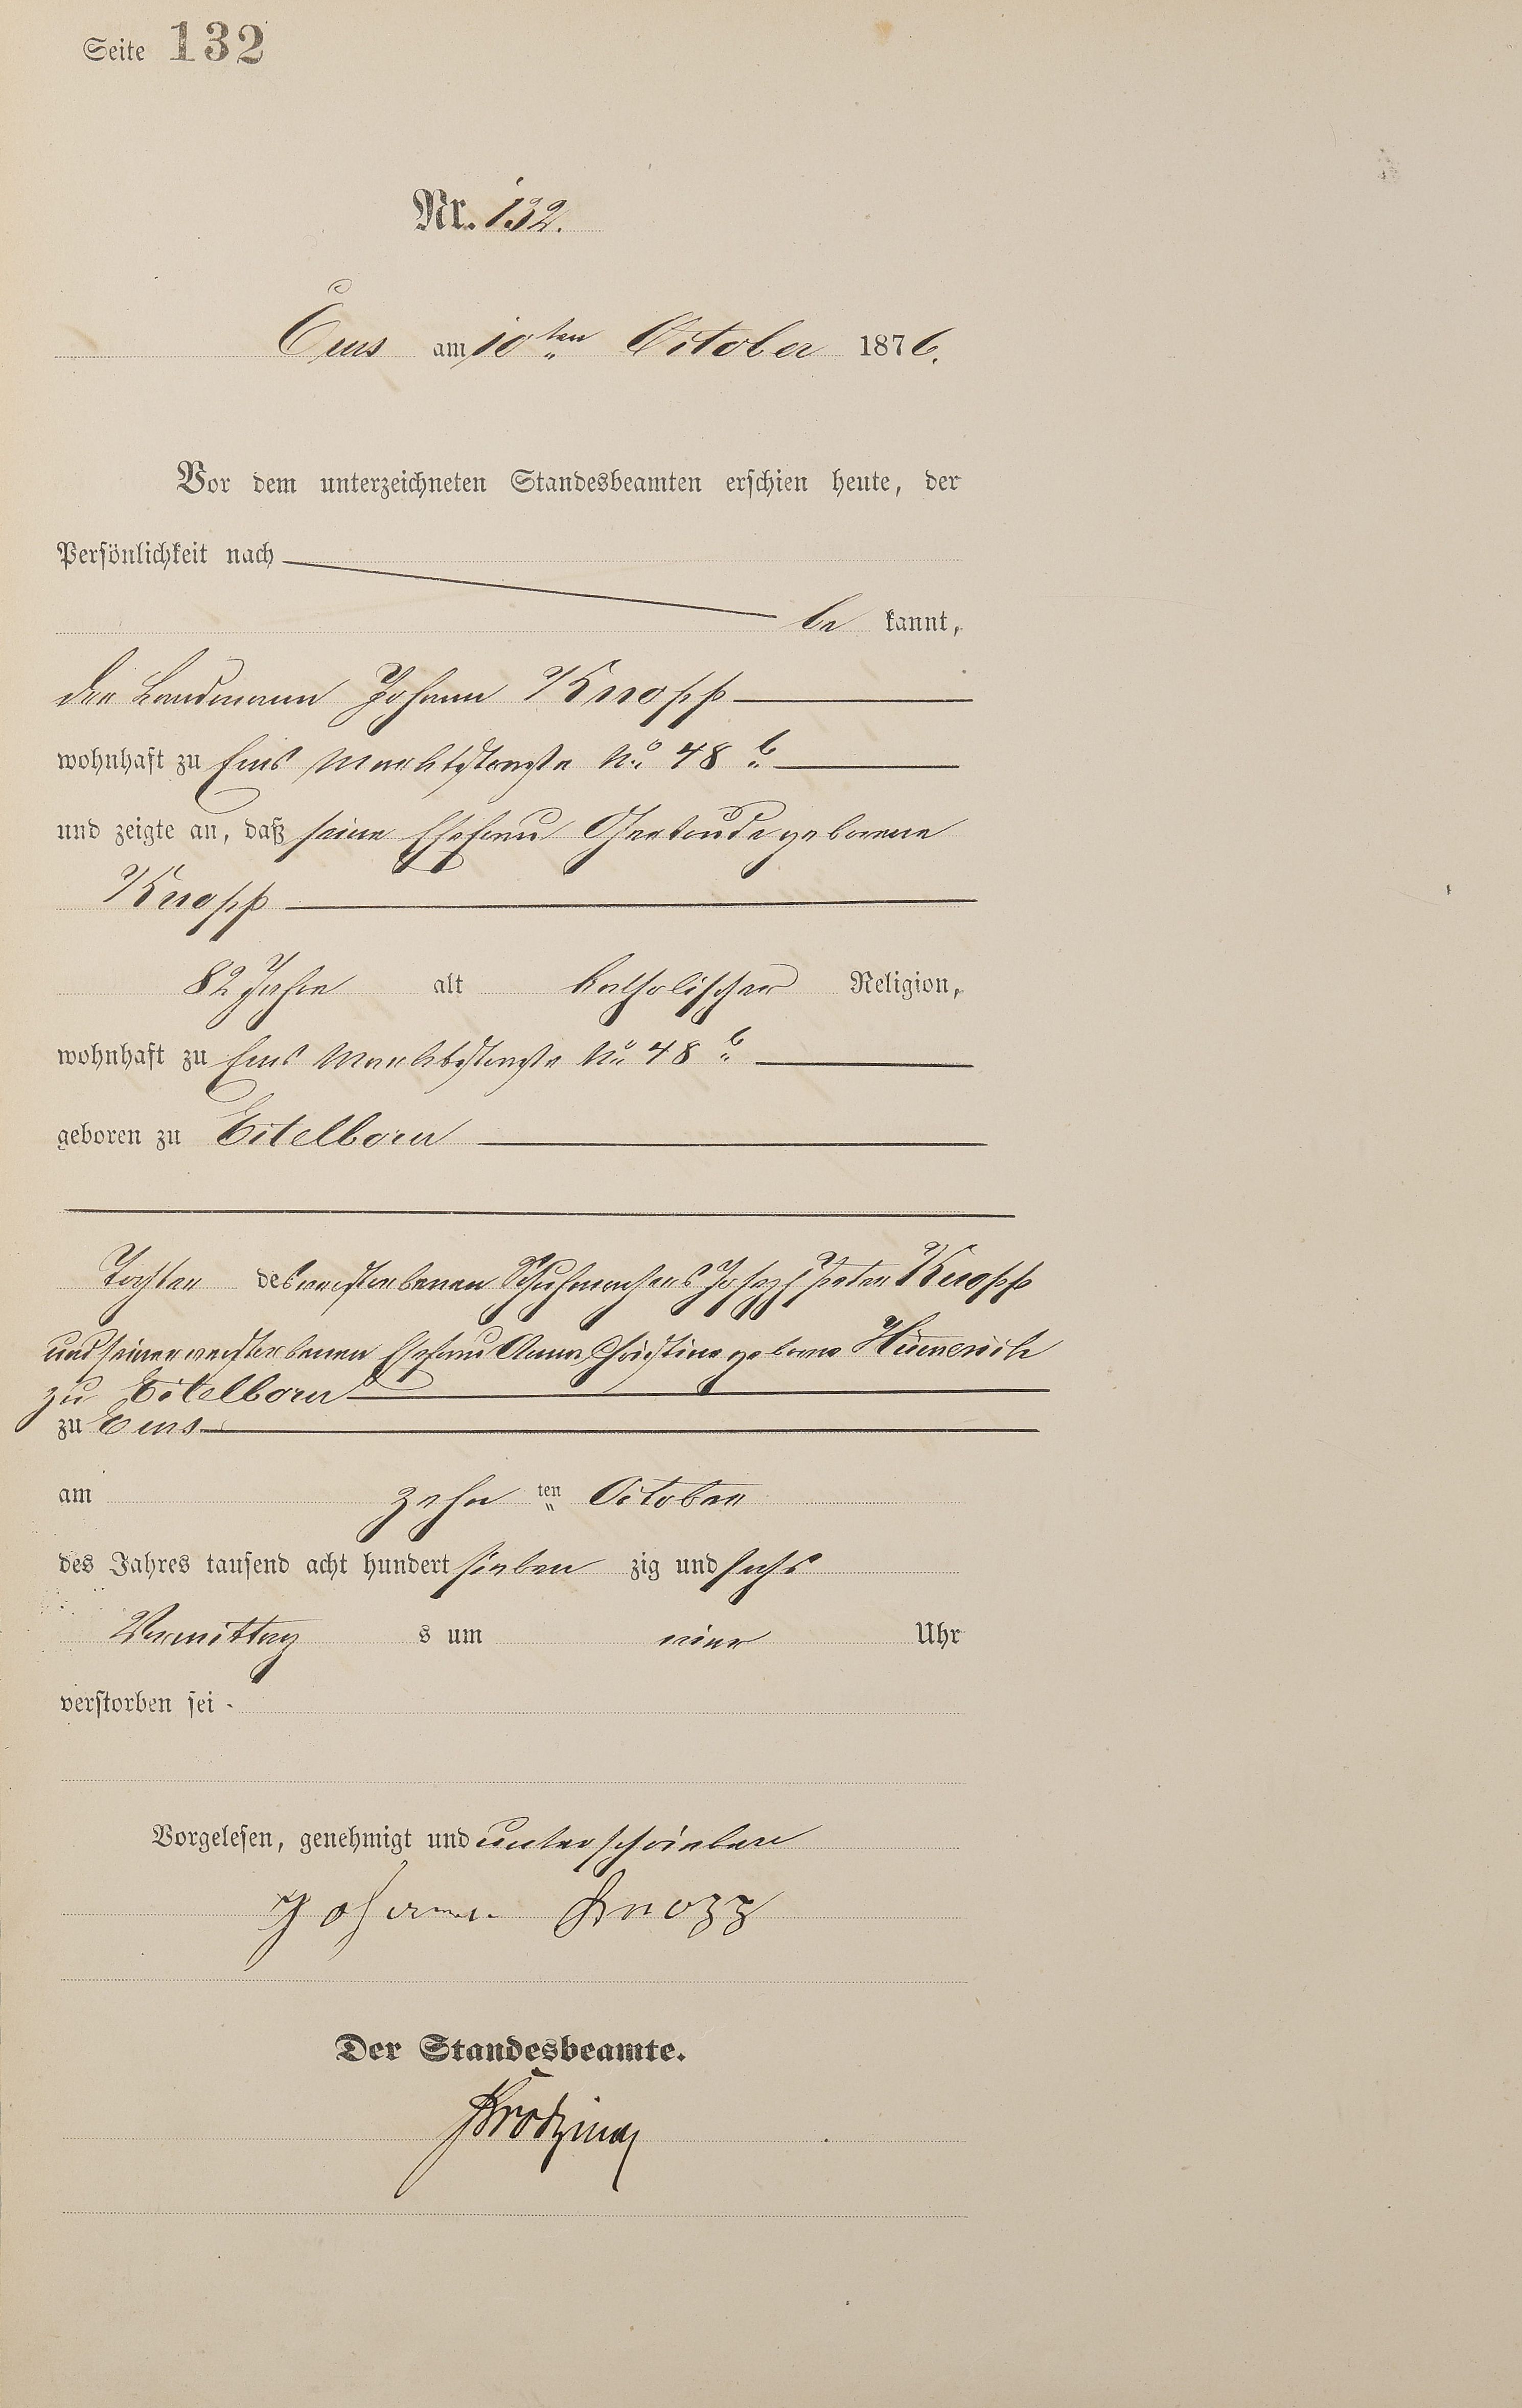 Seite 132
Nr. 132.
Ems am 10ten October 1876.
Vor dem unterzeichneten Standesbeamten erschien heute, der
Persönlichkeit nach
be kannt,
der Landmann Johann Knopp
wohnhaft zu Ems Marktstraße No 48 b
und zeigte an, daß seine Ehefrau Gertrude geborene
Knopp
82 Jahre alt katholischer Religion,
wohnhaft zu Ems Marktstraße No 48 b
geboren zu Eitelborn
Tochter des verstorbenen Schuhmachers Joseph Peter Knopp
und seiner verstorbenen Ehefrau Anna Christine geborne
zu Eitelborn
zu Ems
am zehn ten October
des Jahres tausend acht hundert sieben zig und sechs
Vormittag s um vier Uhr
verstorben sei.
Vorgelesen, genehmigt und unterschrieben
Johann Knopp
Der Standesbeamte.